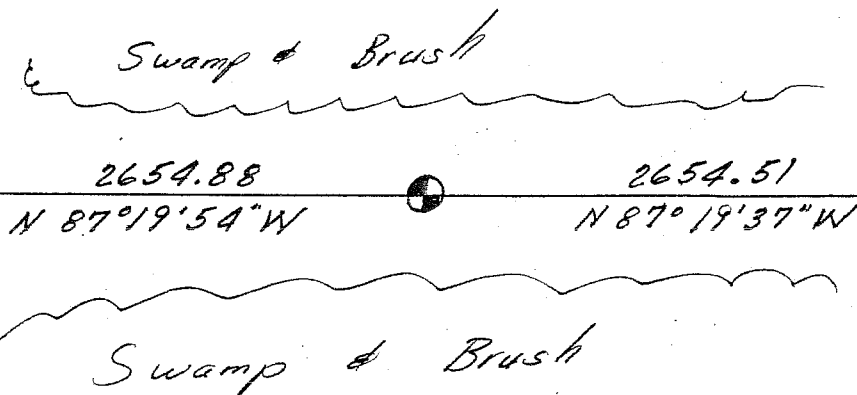 Swamp & Brush
2654.88 2654.51
N 87°19'54"W N 87°19'37"W
Swamp & Brush